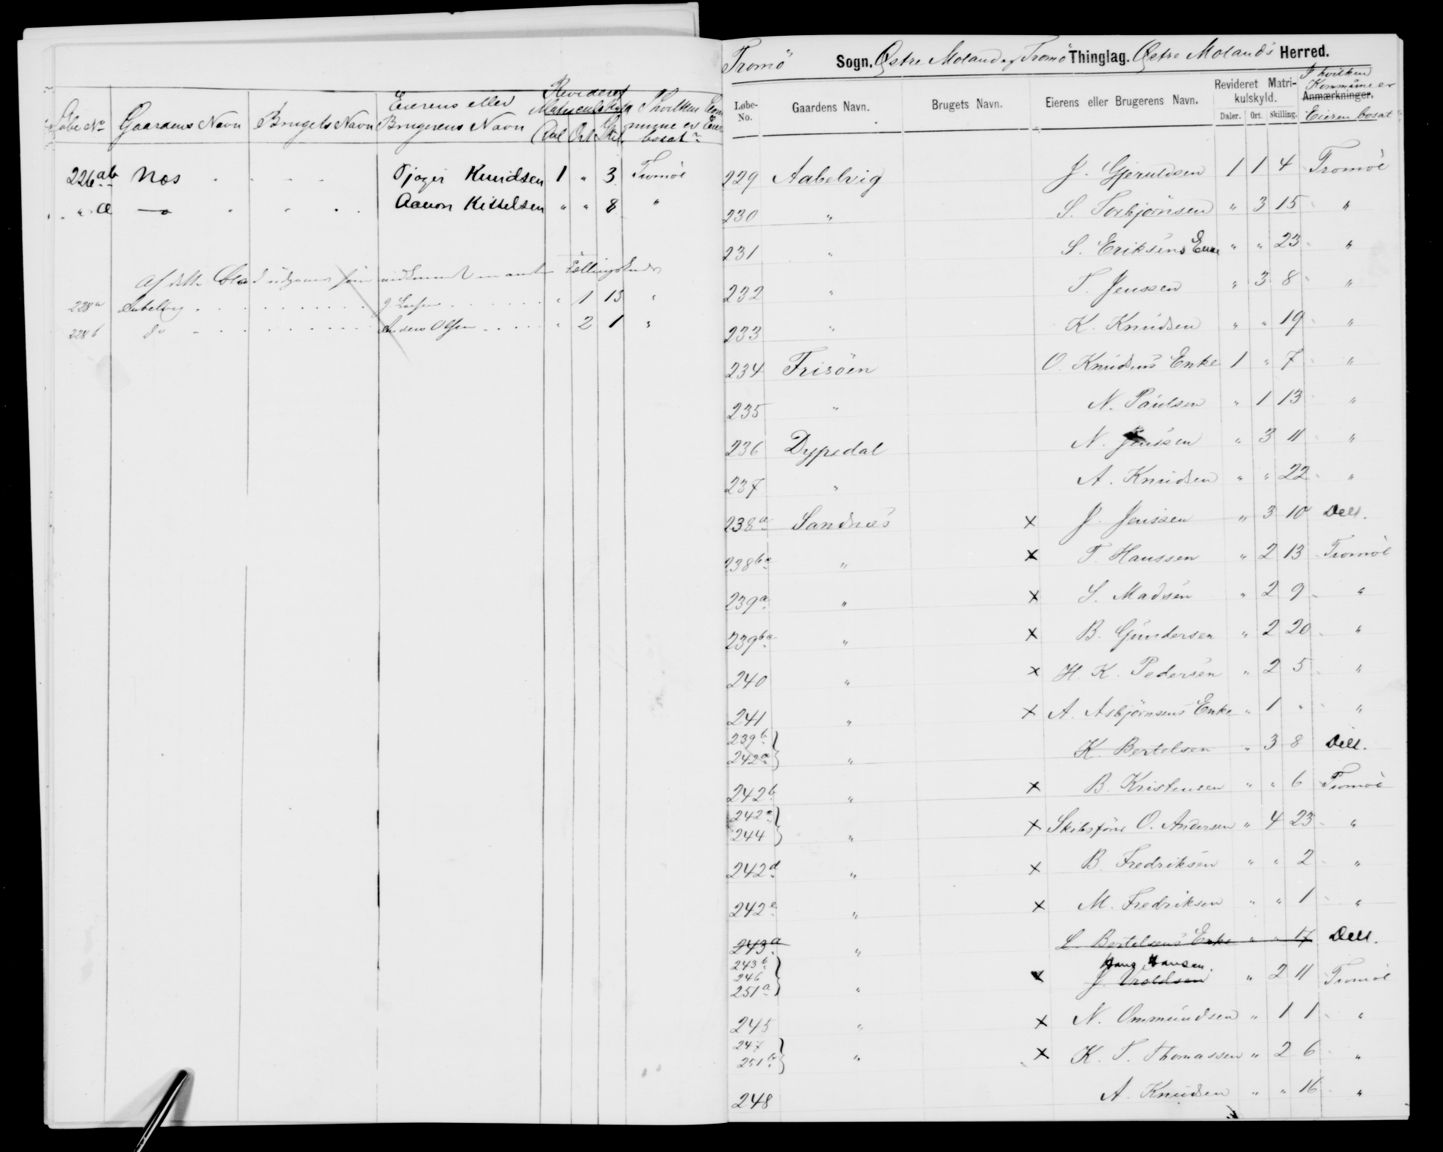 Løbe No Gaardens Navn Brugets Navn Eierens eller Brugerens Navn Revideret Matriculskyld Dal Ort Skil I hvilken Commune er Eieren bosat
226 ab Næs . . . . Knudsen 1 " 3 Tromöe
" " a —o— . . . Aanon Kittelsen " " 8 "
Af dette Blad udgaar
228a Aabelvig . . . . . . . . . . . . . . " 1 13 "
228b do . . . . . . . . . Anders Olsen . . . . . " 2 1 "
Tromö Sogn, Østre Moland og Tromö Thinglag. Østre Molands Herred.
Løbe-No. Gaardens Navn. Brugets Navn. Eierens eller Brugerens Navn. Revideret Matrikulskyld. Daler. Ort. Skilling. Anmærkninger. I hvilken Kommune er Eieren bosat
229 Aabelvig J. Gjeruldsen 1 1 4 Tromöe
230 " S. Torbjörnsen " 3 15 "
231 " S. Eriksens Enke " " 23 "
232 " T. Jenssen " 3 8 "
233 " K. Knudsen " " 19 "
234 Frisöen O. Knudsens Enke 1 " 7 "
235 " N. Paulsen " 1 13 "
236 Dypedal N. Jenssen " 3 11 "
237 " A. Knudsen " " 22 "
238a Sandnæs × J. Jenssen " 3 10 Dell.
238b " × T. Hanssen " 2 13 Tromöe
239a " × S. Madsen " 2 9 "
239b " × B. Gundersen " 2 20 "
240 " × H. K. Pedersen " 2 5 "
241 " × A. Asbjørnsens Enke " 1 " "
239b 242a } " K. Bertelsen " 3 8 Dell.
242b " × B. Kristensen " " 6 Tromöe
242c 244 } " × Skibsfører O. Andersen " 4 23 "
242d " × B. Fredriksen " " 2 "
242e " × M. Fredriksen " " 1 "
243a " L. Bertelsens Enke " " 17 Dell.
243b 246 251a } " × Hans Hansen. J. " 2 11 Tromöe
245 " × N. Ommundsen " 1 1 "
247 251b } " × K. T. Thomassen " 2 6 "
248 A. Knudsen " " 16 "